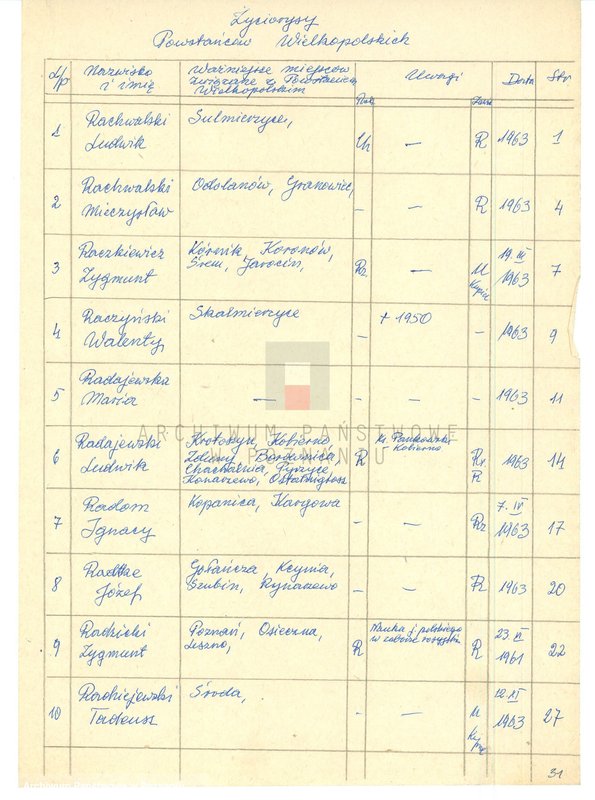 Życiorysy
Powstańców Wielkopolskich
L/p Nazwisko i imię Ważniejsze miejscow związane z Powstaniem Wielkopolskim Uwagi Data Str
1 Rachwalski Ludwik Sulmierzyce, — R 1963 1
2 Rachwalski Mieczysław Odolanów, Granowiec, – – R 1963 4
3 Raczkiewicz Zygmunt Kórnik, Koronów, Śrem, Jarocin, R. — M 19. III 1963 7
4 Raczyński Walenty Skalmierzyce – + 1950 – 1963 9
5 Radajewska Maria — – – – 1963 11
6 Radajewski Ludwik Krotoszyn, Kobierno Zduny, Borownica Chachalnia, Pyrzyce, Konarzewo, R Kobierno R 1963 14
7 Radom Ignacy Kopanica, Kargowa – – Rz 7. IV 1963 17
8 Radtke Józef Gołańcza, Kcynia, Szubin, Rynarzewo – – R 1963 20
9 Radzicki Zygmunt Poznań, Osieczna, Leszno, R Nauka j. polskiego w zaborze R 23. VI 1961 22
10 Radziejewski Tadeusz Środa, – – M 12. XI 1963 27
31
ARCHIWUM PAŃSTWOWE
W POZNANIU